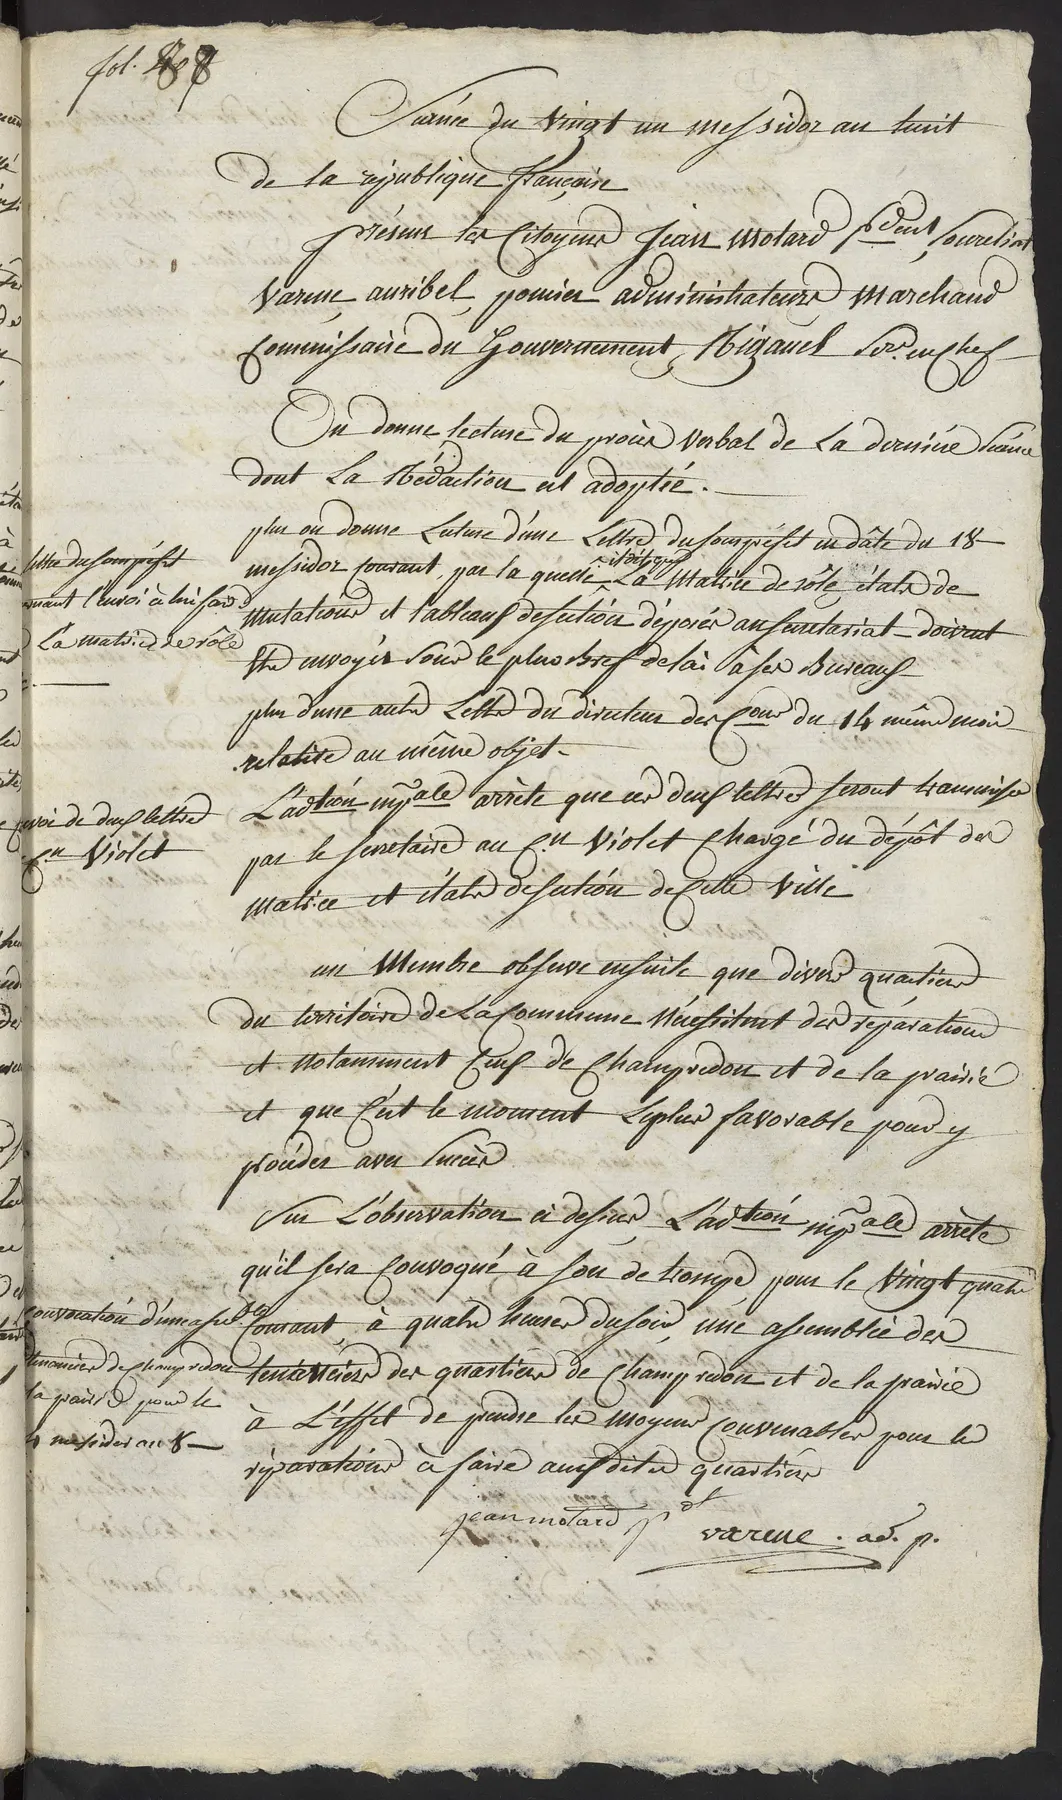 fol.
Séance du vingt un messidor an huit
de la république française
présens les Citoyens Jean Motard pdent, Soureliat
Varene, auribel, pomier administrateurs Marchand
Commissaire du Gouvernement, Rigauel Sre. en Chef
On donne lecture du procès verbal de La derniére Séance
dont La Rédaction est adoptée.
plus on donne Lecture d'une Lettre du Souspréfet en dâte du 18
messidor courant, par la quelle il dit que La Matrice de rôle, états de
Mutations et tableaux de section déposés au secretariat doivent
Etre envoyés Sous le plus Bref delai à ses Bureaux
plus d'une autre Lettre du directeur des Cons du 14 même mois
relative au même objet.
L'adtion mpale arrête que ces deux lettres seront transmises
par le secretaire au Cen Violet Chargé du dépôt des
matrice et états de section de Cette Ville
un Membre observe ensuite que divers quartiers
du territoire de La Commune Nécessitent des réparations
et notamment Ceux de Champredon et de la prairie
et que C'est le moment Le plus favorable pour y
procéder avec Succès
Sur L'observation ci dessus, L'adtion mpale arrête
qu'il sera Convoqué à son de trompe, pour le Vingt quatre
Courant, à quatre heures du soir, une assemblée des
tenanciers des quartiers de Champredon et de la prairie
à L'effet de prendre les moyens Convenables pour les
réparations à faire auxdits quartiers
jean motard pdt varene. ad. p.
lettre du souspréfet
l'envoi à lui faire
La matrice de rôle
envoi de deux lettres
Cen Violet
Convocation d'une assee
tenanciers de Champredon
la prairie pour le
messidor an 8